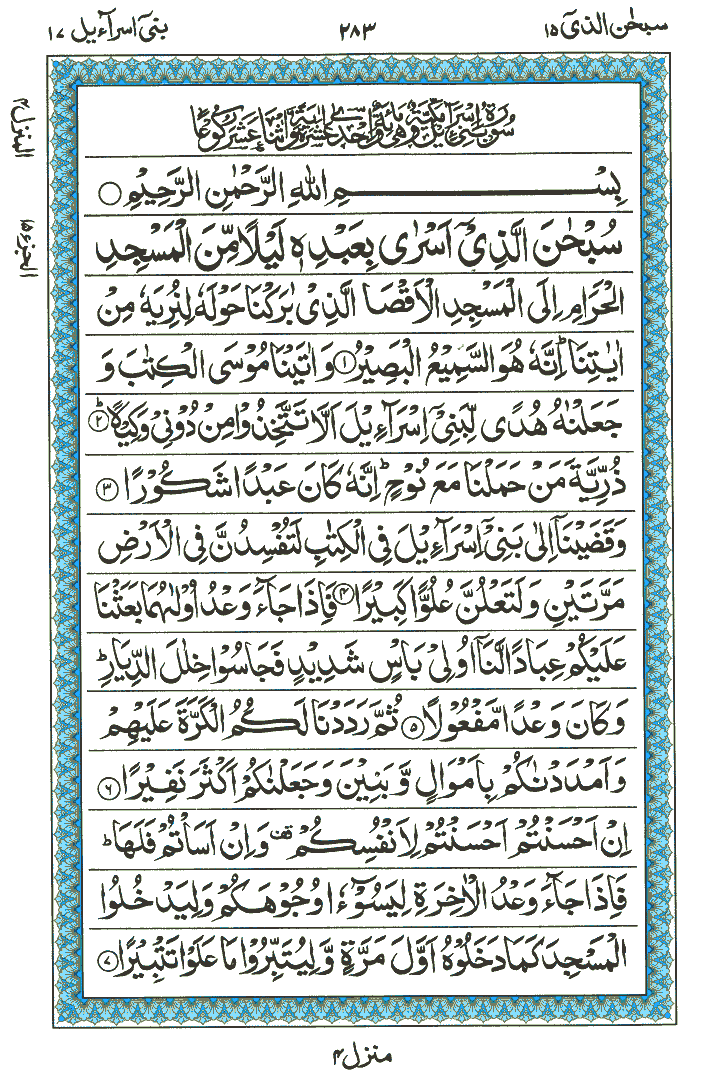 سبحٰن الذیٓ ١٥
٢٨٣
بنیٓ اسرآءیل ١٧
المنزل ٤
الجزء ١٥
سُوْرَةُ بَنِیْٓ اِسْرَآءِیْلَ مَكِّیَّةٌ وَّهِیَ مِائَةٌ وَّاِحْدٰی عَشَرَةَ اٰیَةً وَّاثْنَا عَشَرَ رُكُوْعًا
بِسْمِ اللّٰهِ الرَّحْمٰنِ الرَّحِیْمِ
سُبْحٰنَ الَّذِیْٓ اَسْرٰی بِعَبْدِهٖ لَیْلًا مِّنَ الْمَسْجِدِ
الْحَرَامِ اِلَی الْمَسْجِدِ الْاَقْصَا الَّذِیْ بٰرَكْنَا حَوْلَهٗ لِنُرِیَهٗ مِنْ
اٰیٰتِنَا ؕ اِنَّهٗ هُوَ السَّمِیْعُ الْبَصِیْرُ ١ وَاٰتَیْنَا مُوْسَی الْكِتٰبَ وَ
جَعَلْنٰهُ هُدًی لِّبَنِیْٓ اِسْرَآءِیْلَ اَلَّا تَتَّخِذُوْا مِنْ دُوْنِیْ وَكِیْلًا ؕ ٢
ذُرِّیَّةَ مَنْ حَمَلْنَا مَعَ نُوْحٍ ؕ اِنَّهٗ كَانَ عَبْدًا شَكُوْرًا ٣
وَقَضَیْنَاۤ اِلٰی بَنِیْٓ اِسْرَآءِیْلَ فِی الْكِتٰبِ لَتُفْسِدُنَّ فِی الْاَرْضِ
مَرَّتَیْنِ وَلَتَعْلُنَّ عُلُوًّا كَبِیْرًا ٤ فَاِذَا جَآءَ وَعْدُ اُوْلٰىهُمَا بَعَثْنَا
عَلَیْكُمْ عِبَادًا لَّنَاۤ اُولِیْ بَاْسٍ شَدِیْدٍ فَجَاسُوْا خِلٰلَ الدِّیَارِ ؕ
وَكَانَ وَعْدًا مَّفْعُوْلًا ٥ ثُمَّ رَدَدْنَا لَكُمُ الْكَرَّةَ عَلَیْهِمْ
وَاَمْدَدْنٰكُمْ بِاَمْوَالٍ وَّبَنِیْنَ وَجَعَلْنٰكُمْ اَكْثَرَ نَفِیْرًا ٦
اِنْ اَحْسَنْتُمْ اَحْسَنْتُمْ لِاَنْفُسِكُمْ قف وَاِنْ اَسَاْتُمْ فَلَهَا ؕ
فَاِذَا جَآءَ وَعْدُ الْاٰخِرَةِ لِیَسُوْٓءٗا وُجُوْهَكُمْ وَلِیَدْخُلُوا
الْمَسْجِدَ كَمَا دَخَلُوْهُ اَوَّلَ مَرَّةٍ وَّلِیُتَبِّرُوْا مَا عَلَوْا تَتْبِیْرًا ٧
منزل ٤